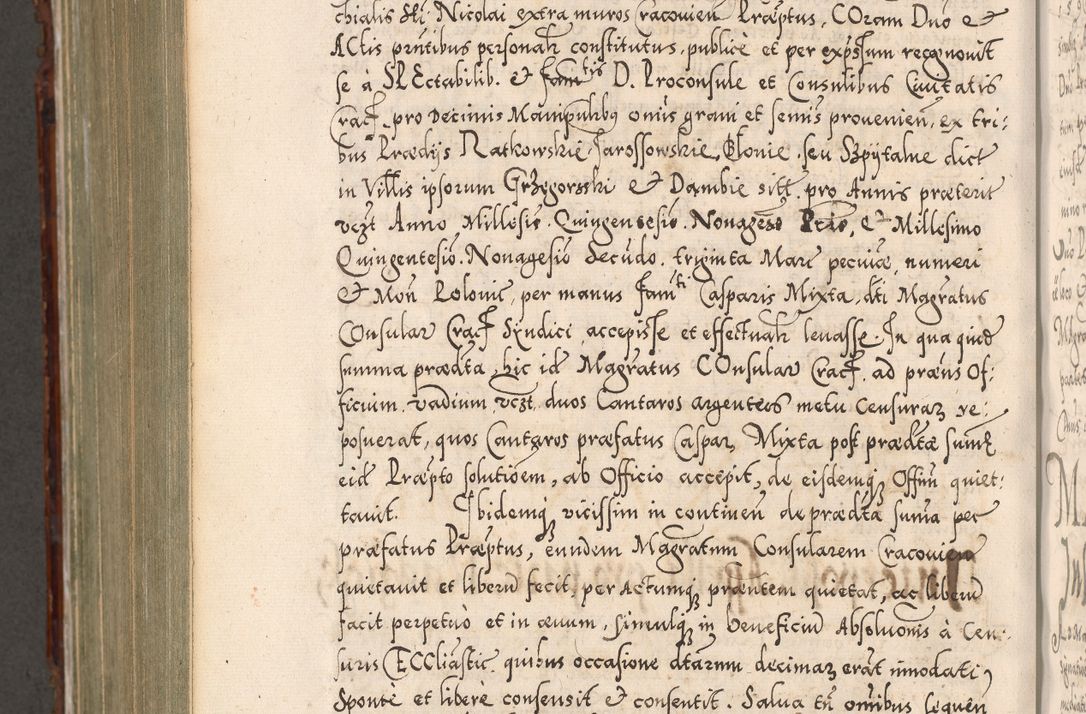 chialis Sti Nicolai extra muros Cracovien Præptus, COram Duo et
ACtis pñtibus personalr constitutus, publicè et per expssum recognovit
se à SPEctabilib. et famtis D. Proconsule et Consulibus Civitatis
Cracf. pro Decimis Manipulibq omis grani et semis provenien, ex tri-
bus Prædijs Ratkowskie, Jarossowskie, Glonie, seu Szpytalne dict
in Villis ipsorum Grzegorski et Dambie sitt, pro Annis præterit
vczt Anno Millesiō. Quingentesiō. Nonagesō Priō, et Millesimo
Quingentesiō. Nonagesiō Secūdo, triginta Marc pecuiæ, numeri
et Mon Polonic, per manus famti Casparis Mixta, dti Magratus
COnsular Cracf Syndici, accepisse et effectualr levasse. In qua quidē
summa prædta, hic idē Magratus COnsular Cracf, ad præns Of:
ficium, vadium, vczt. duos Cantaros argenteos metu Censuraz re:
posuerat, quos Cantaros præfatus Caspar Mixta post prædtæ sumē
eidē Præpto solutioem, ab Officio accepit, de eisdemqz Offim quiet:
tavit. Ibidemqz vicissim in continen de prædta suma per
præfatus Præptus, eundem Magratum Consularem Cracovien
quietavit et liberū fecit, per Actumqz præntem quietat, ac liberū
facit perpetuò et in ævum, simulqz in beneficiū Absoluonis à Cen:
suris ECCliastic quibus occasione dtarum decimaz erāt innodati,
Sponte et liberè consensit et consentit. Salva tn omibus sequen